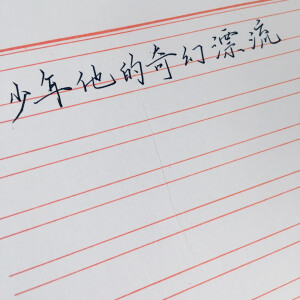 少年他的奇幻漂流